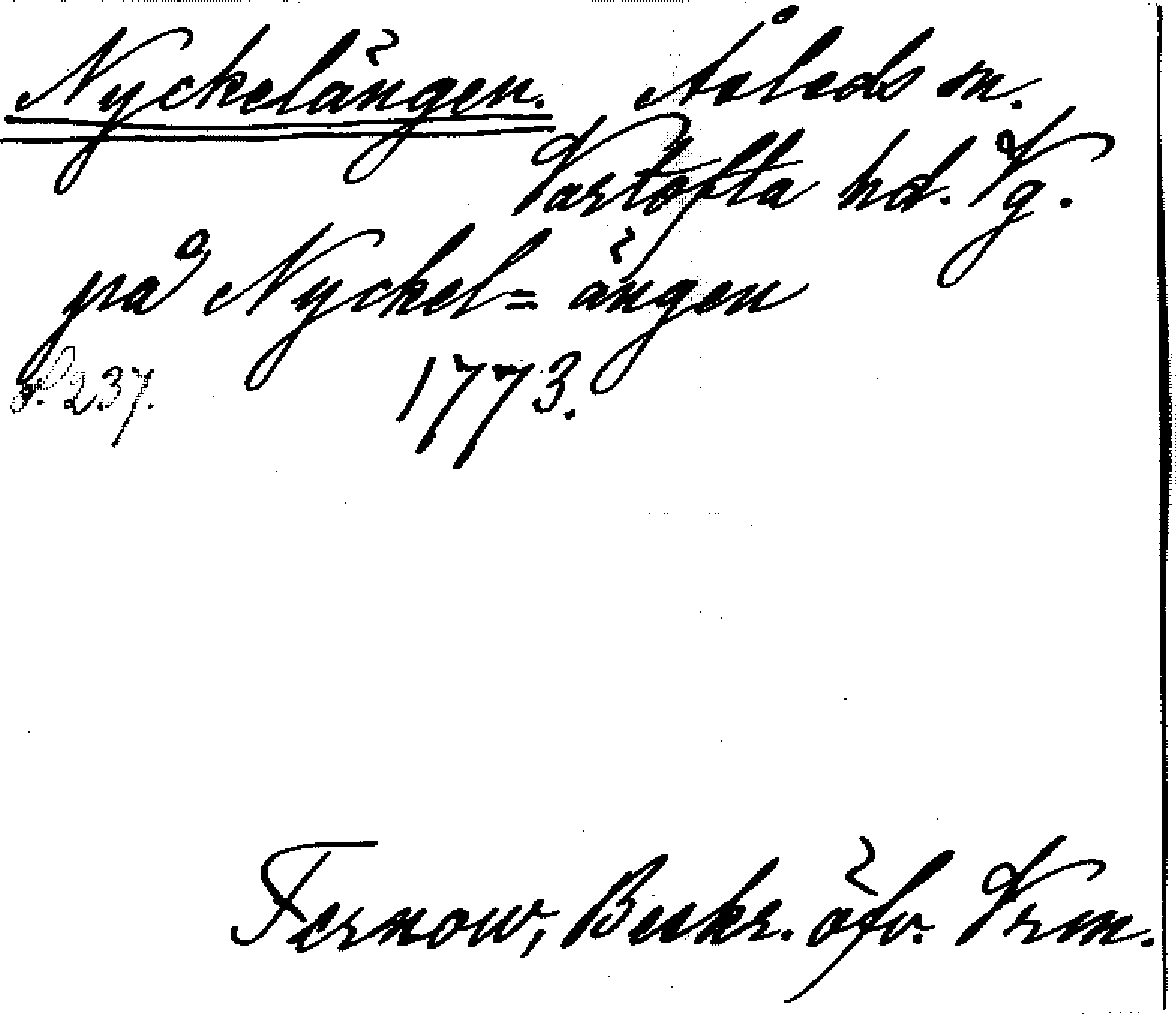 Nyckelängen. Åsleds sn.
Vartofta hd. Vg.
på Nyckel= ängen
S. 237. 1773.
Fernow, Beskr. öfv. Vrm.